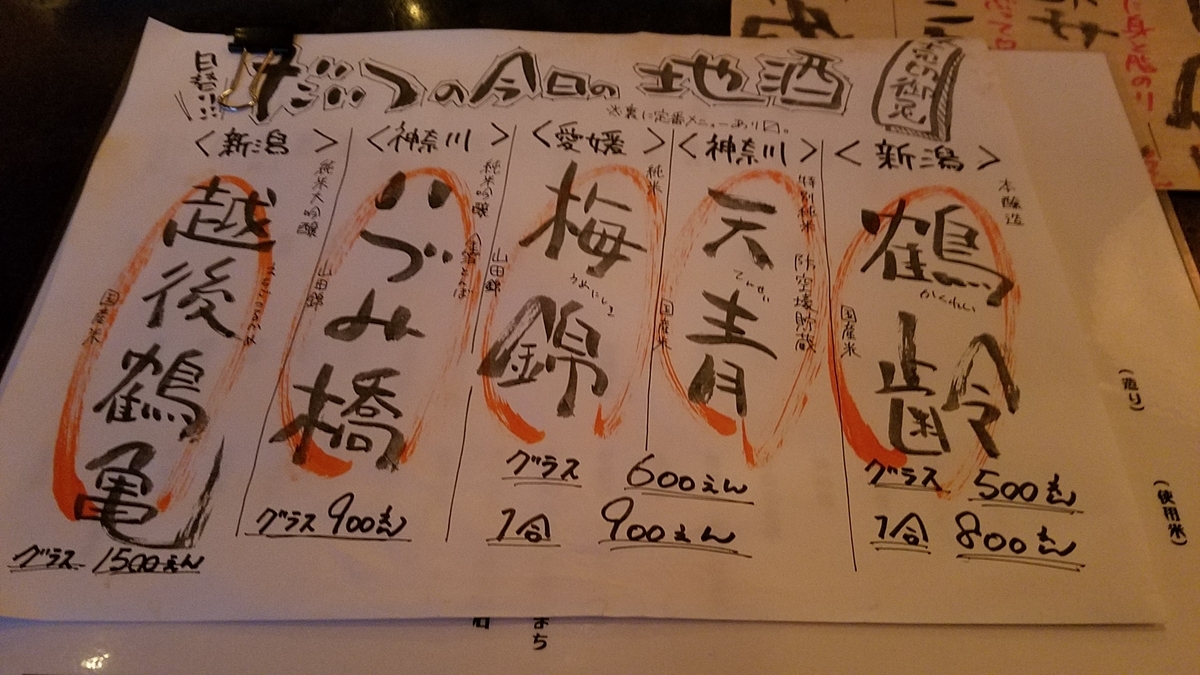 日替り
の今日の地酒
売切御免
※裏に定番メニューあり〼。
<新潟>
本醸造
鶴齢
かくれい
国産米
グラス 500えん
1合 800えん
<神奈川>
特別純米
防空壕貯蔵
天青
てんせい
国産米
<愛媛>
純米
梅錦
うめにしき
山田錦
グラス 600えん
1合 900えん
<神奈川>
純米吟醸
いづみ橋
山田錦
グラス 900えん
<新潟>
純米大吟醸
越後鶴亀
国産米
グラス 1500えん
(造り)
(使用米)
まち